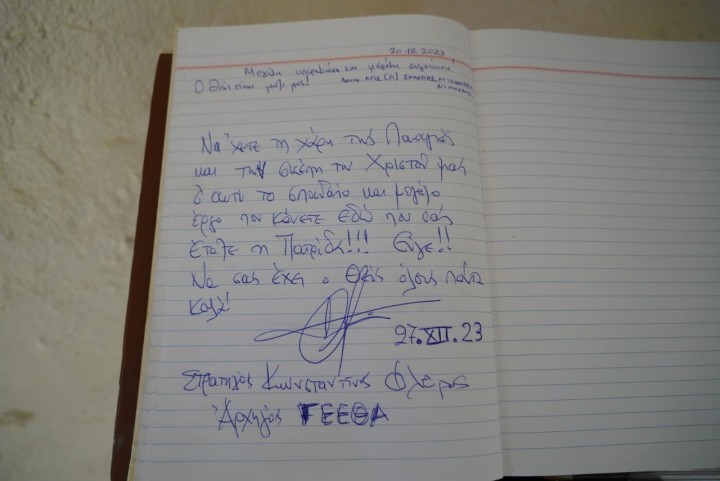 20.12.2023
Μεγάλη υπερηφάνεια και μεγάλη συγκίνηση!
Ο Θεός είναι μαζί μας!
Να 'χετε τη χάρη της Παναγιάς
και την σκέπη του Χριστού μας
σ' αυτό το σπουδαίο και μεγάλο
έργο που κάνετε εδώ που σας
έταξε η Πατρίδα!!! Εύγε!!
Να σας έχει ο Θεός όλους πάντα
καλά!
27.XII.23
Στρατηγός Κωνσταντίνος Φλώρος
Αρχηγός ΓΕΕΘΑ